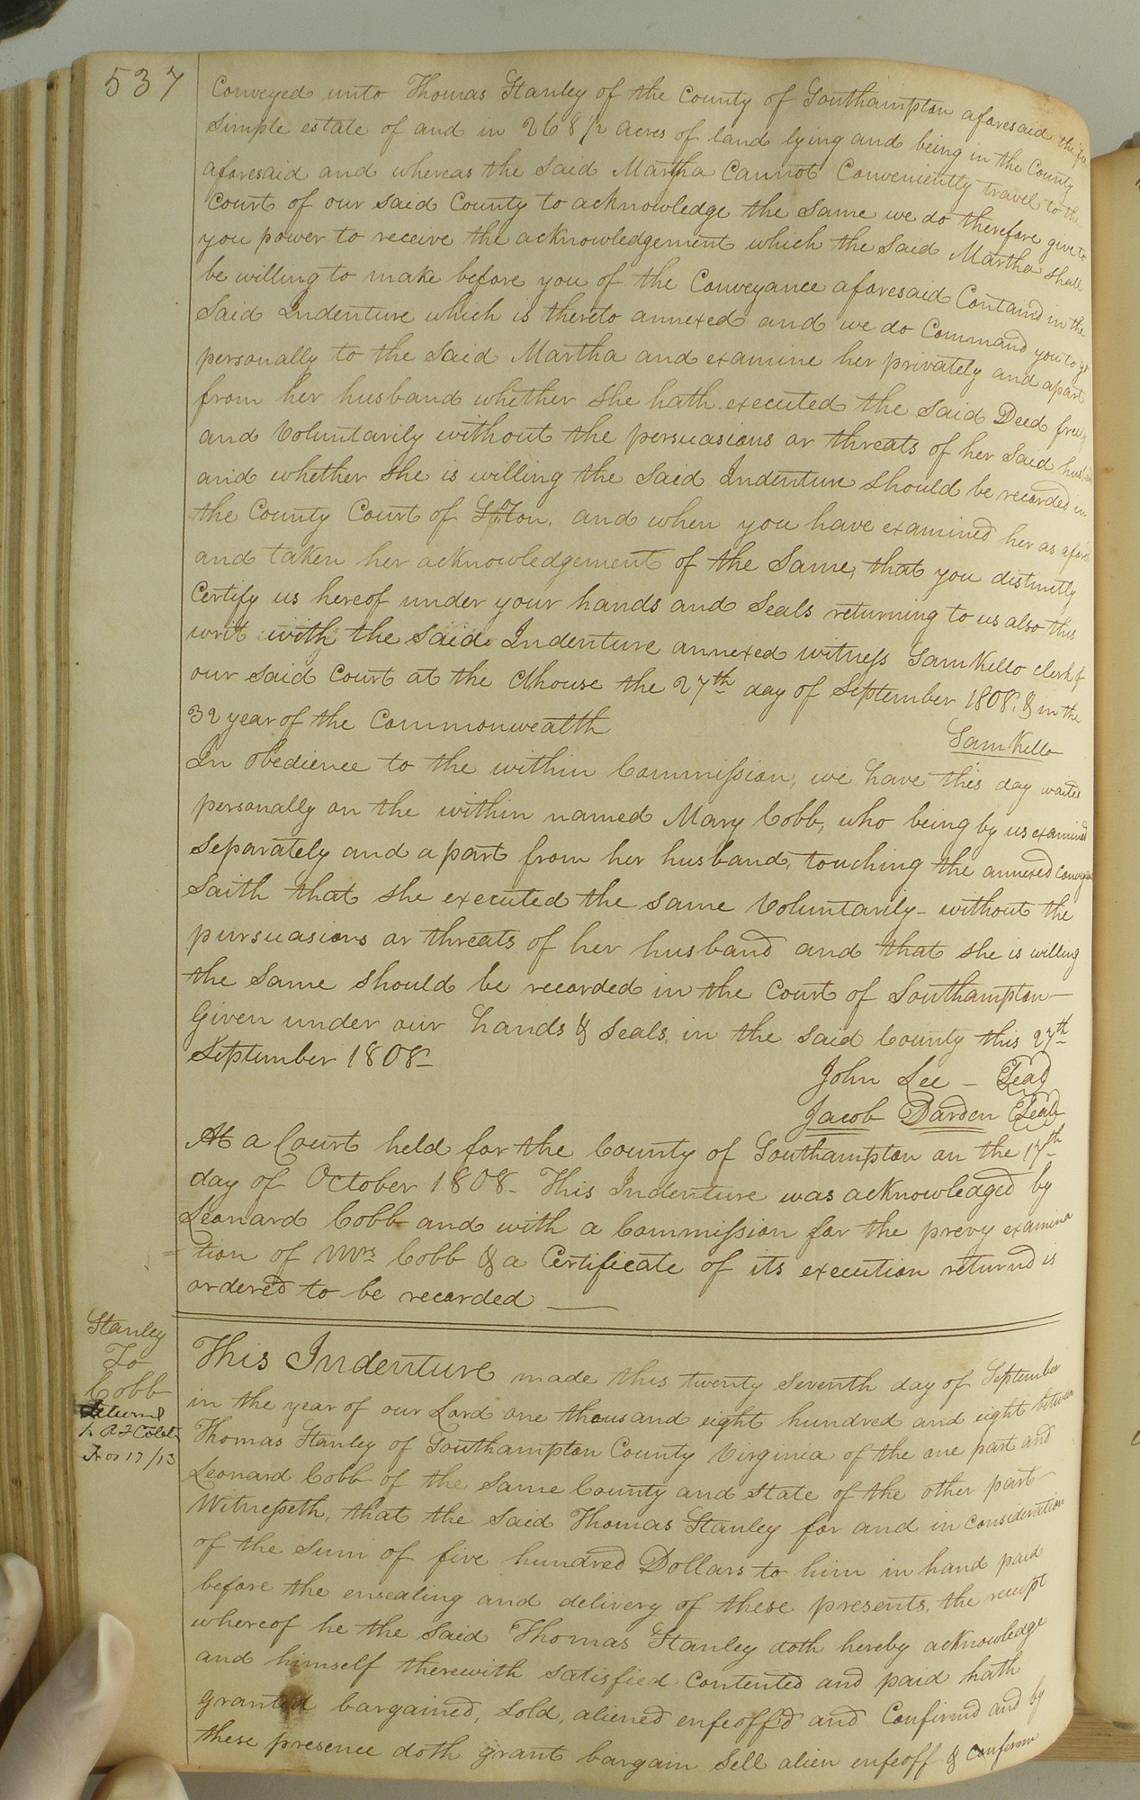 537
Conveyed unto Thomas Stanley of the County of Southampton aforesaid the fee
Simple estate of and in 268½ acres of land lying and being in the County
aforesaid and whereas the said Martha Cannot Conveniently travel to the
Court of our said County to acknowledge the same we do therefore give to
you power to receive the acknowledgement which the said Martha shall
be willing to make before you of the Conveyance aforesaid Containd in the
Said Indenture which is thereto annexed and we do Command you to go
personally to the said Martha and examine her privately and apart
from her husband whether she hath executed the said Deed freely
and Voluntarily without the persuasions or threats of her said
and whether she is willing the said Indenture should be recorded in
the County Court of and when you have examined her as
and taken her acknowledgement of the same, that you distinctly
Certify us hereof under your hands and Seals returning to us also this
writ with the said Indenture annexed witness Sam Kello clerk of
our said Court at the Chouse the 27th day of September 1808. & in the
32 year of the Commonwealth
Sam Kello
In Obedience to the within Commission, we have this day waited
personally on the within named Mary Cobb, who being by us examined
Separately and apart from her husband, touching the annexed
Saith that she executed the same Voluntarily without the
pursuasions or threats of her husband and that she is willing
the same should be recorded in the Court of Southampton —
Given under our hands & seals, in the said County this 27th
September 1808 —
John Lee — Seal
Jacob Darden Seal
At a Court held for the County of Southampton on the 17th
day of October 1808 - This Indenture was acknowledged by
Leonard Cobb and with a Commission for the prevy examina
=tion of Mrs Cobb & a Certificate of its execution returnd is
ordered to be recorded —
Stanley
To
Cobb
Nov 17/13
This Indenture made this twenty seventh day of September
in the year of our Lord one thousand eight hundred and eight between
Thomas Stanley of Southampton County Virginia of the one part and
Leonard Cobb of the same County and state of the other part
Witnesseth, that the said Thomas Stanley for and in consideration
of the sum of five hundred Dollars to him in hand paid
before the ensealing and delivery of these presents, the receipt
whereof he the said Thomas Stanley doth hereby acknowledge
and himself therewith satisfied contented and paid hath
granted bargained, sold, aliened enfeoff'd and Confirmd and by
these presence doth grant bargain Sell alien enfeoff & Confirm